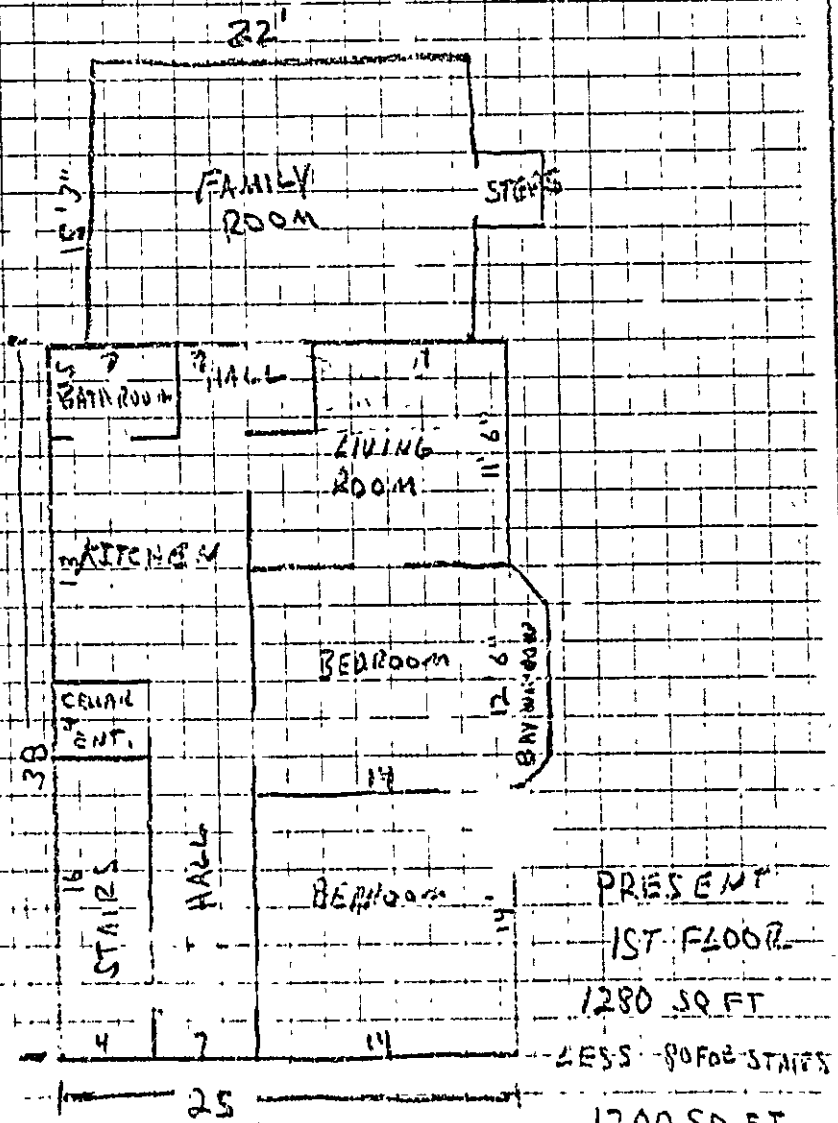 22'
FAMILY
ROOM
STEPS
15'3"
5
7
BATHROOM
7
HALL
11
LIVING
ROOM
11'6"
13
KITCHEN
BEDROOM
12'6"
BAY WINDOW
CELLAR
4
ENT.
38
14
16
STAIRS
HALL
BEDROOM
14
PRESENT
1ST FLOOR
1280 SQ FT
LESS 80 FOR STAIRS
1200 SQ FT
4
7
14
25